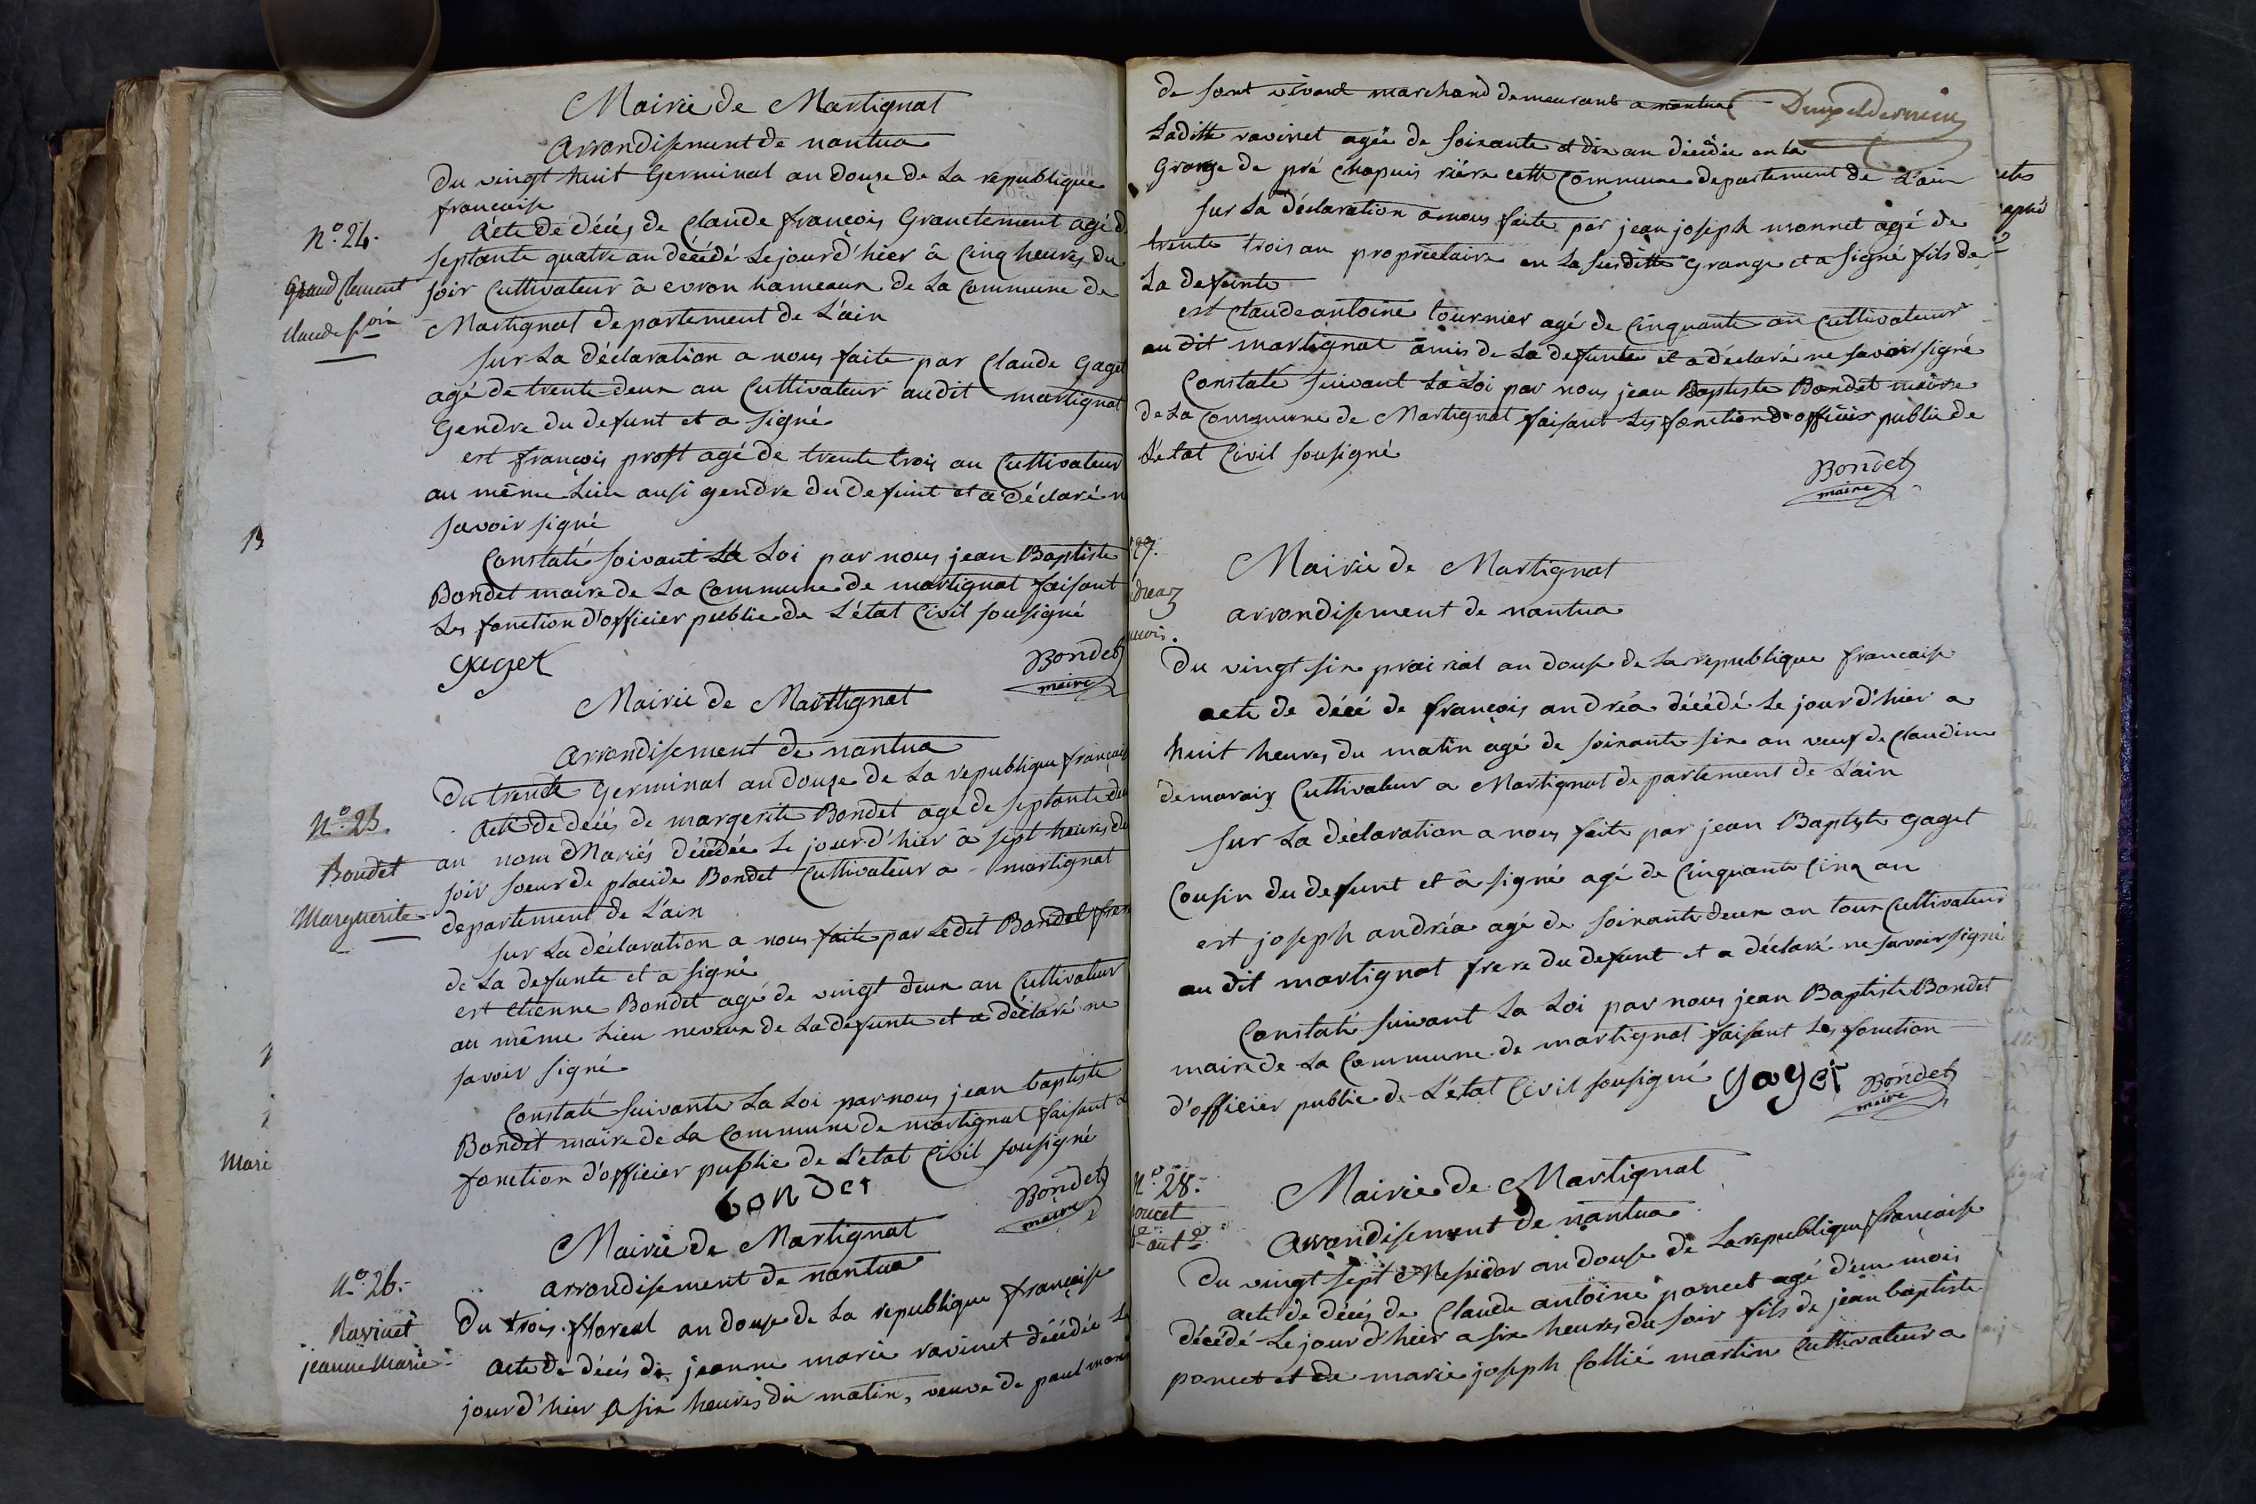 Mairie de Martignat
arrondisement de nantua
Du vingt huit Germinal an douze de La republique
francaise
N.º 24.
Grand Clement
Claude f.ois
Acte de décés de Claude françois Granclement agé d
septante quatre an décédé Le jour d'hier â Cinq heures du
soir Cultivateur â evron hameaux de La Commune de
Martignat departement de L'ain
sur La déclaration a nous faite par Claude Gaget
agé de trente deux an Cultivateur audit martignat
Gendre du defunt et a signé
est françois prost agé de trente trois an Cultivateur
au même Lieu ausi gendre du defunt et a déclaré n
savoir signé
Constaté soivant La Loi par nous jean Baptiste
Bondet maire de La Commune de martignat faisant
Les fonction d'officier public de L'état Civil sousigné
Gaget
Bondet
maire
Mairie de Marttignat
arrondisement de nantua
N.º 25.
Bondet
Marguerite
Du trente Germinal an douze de La republique français
Acte de décés de margerite Bondet age de septante deu
an nom Mariés décédée Le jour d'hier â sept heures du
soir soeur de placide Bondet Cultivateur a martignat
departement de L'ain
sur La déclaration a nous faite par Ledit Bondet frere
de La defunte et a signé
est etienne Bondet agé de vingt deux an Cultivateur
au même Lieu neveux de La defunte et a déclaré ne
savoir signé
Constaté suivante La Loi par nous jean baptiste
Bondet maire de La Commune de martignat faisant L
fonction d'officier public de L'etat Civil sousigné
bondet
Bondet
maire
Mairie de Martignat
arrondisement de nantua
N.º 26.
Ravinet
jeanne Marie
Du trois floreal an douse de La republique française
acte de décés de jeanne marie ravinet décédée Le
jour d'hier a six heures du matin, veuve de paul mon
de sont vivant marchand demeurant a nantua
Laditte ravinet agée de soixante et dix an décédée en La
Grange de pré Chapuis riére cette Commune departement de L'ain
sur La déclaration a nous faite par jean joseph monnet agé de
trente trois an proprietaire en La susditte Grange et a signé fils de
La defunte
est Claude antoine tournier agé de Cinquante an Cultivateur
au dit martignat amis de La defunte et a déclaré ne savoir signé
Constaté suivant La Loi par nous jean Baptiste Bondet maire
de La Commune de Martignat faisant Les fonction d'officier public de
L'etat Civil sousigné
Bondet
maire
27.
Mairie de Martignat
arrondisement de nantua
Du vingt six prairial an douse de La republique francaise
acte de décé de françois andréa décédé Le jour d'hier a
huit heures du matin agé de soixante six an veuf de Claudine
demaraiz Cultivateur a Martignat departement de L'ain
sur La déclaration a nous faite par jean Baptiste gaget
Cousin du defunt et â signé agé de Cinquante Cinq an
est joseph andréa agé de soixante deux an tour Cultivateur
au dit martignat frere du defunt et a déclaré ne savoir signé
Constaté suivant La Loi par nous jean Baptiste Bondet
maire de La Commune de martignat faisant Les fonction
d'officier public de L'état Civil sousigné
gaget
Bondet
maire
N.º 28.
Mairie de Martignat
arrondisement de nantua
Du vingt sept Messidor an douse de La republique française
acte de décés de Claude antoine poncet agé d'un mois
décédé Le jour d'hier a six heures du soir fils de jean baptiste
poncet et de marie joseph Collié martin Cultivateur a